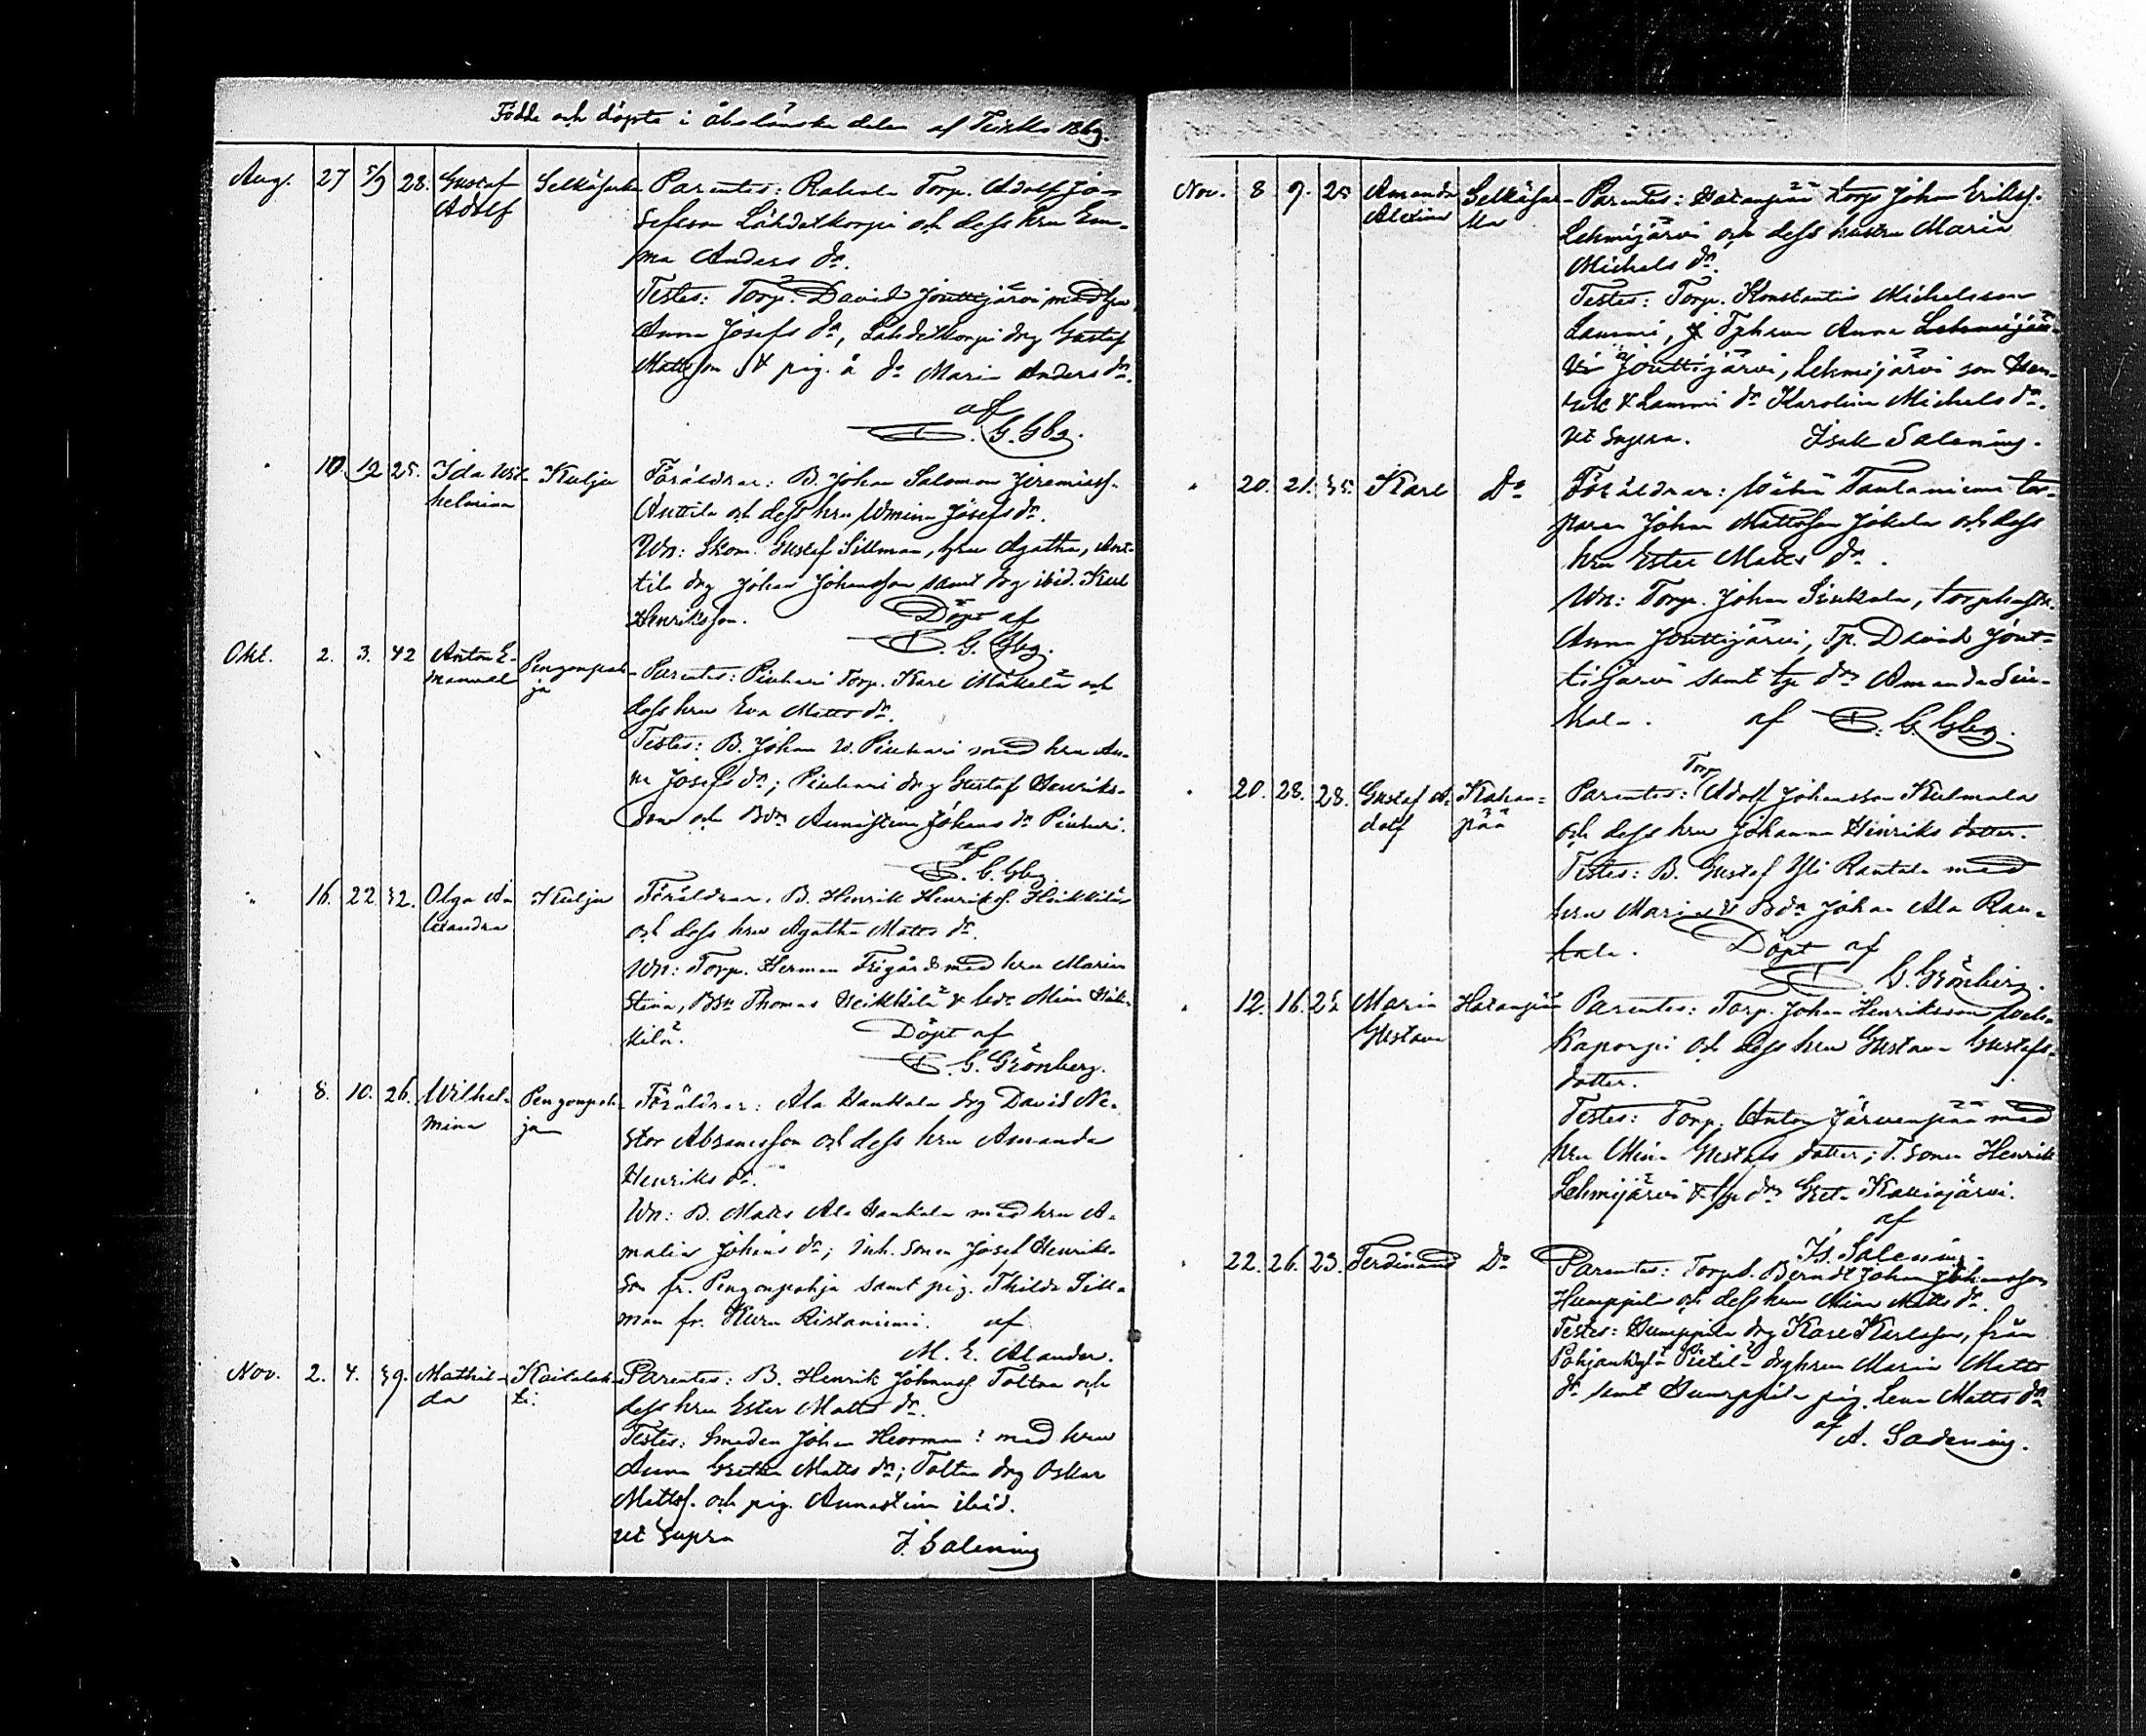 Födde och döpte i åbolänska delen af Teisko 1869.
Aug. 27 5/9 28. Gustaf Adolf Selkäsaari Parentes: Torp. Adolf Jo-
sefsson Lähdekorpi och dess hru Em-
ma Anders dr.
Testes: Torp. David Jouttijärvi med hru
Anna Josefs dr, Lähdekorpi drg Gustaf
Mattsson & pig. å do Maria Anders dr.
af
G. Gbg.
10 12 25. Ida Wil-
helmina Kulju Föräldrar: B. Johan Salomon Jeremiass.
Anttila och dess hru Wmina Josefs dr.
Wn: Skom. Gustaf Sillman, hru Agatha, Ant-
tila drg Johan Johansson samt drg ibid. Karl
Henriksson. Döpt af
G. Gbg.
Okt. 2. 3. 42 Anton E-
manuel Pengonpoh-
ja Parentes: Piukari Torp. Karl Mäkelä och
dess hru Eva Matts dr.
Testes: B. Johan W. Piukari med hru An-
na Josefs dr; Piukari drg Gustaf Henriks-
son och Bdr Annastina Johans dr Piukari.
af
G. Gbg.
16. 22. 32. Olga A-
lexandra Kulju Föräldrar: B. Henrik Henrikss. Heikkilä
och dess hru Agatha Matts dr.
Wn: Torp. Herman Frigård med hru Maria
Stina, Bsn Thomas Heikkilä & bdr Mina Heik-
kilä. Döpt af
G. Grönberg.
8. 10. 26. Wilhel-
mina Pengonpoh-
ja Föräldrar: Ala Hankala drg David Ne-
stor Abramsson och dess hru Amanda
Henriks dr.
Wn: B. Matts Ala Hankala med hru A-
malia Johans dr; Inh. sonen Josef Henriks-
son fr. Pengonpohja samt pig. Thilda Sill-
man fr. Kuru Ristaniemi. af
M. E. Alander.
Nov. 2. 4. 39. Mathil-
da Kaitalah-
ti. Parentes: B. Henrik Johanss. Toltaa och
dess hru Ester Matts dr.
Testes: Smeden Johan Heorman? med hru
Anna Gretha Matts dr; Toltaa drg Oskar
Mattss. och pig. Annastina ibid.
ut supra J. Salening
Nov. 8 9. 25 Amanda
Alexina Selkäsaa-
Parentes: Hatanpää torp Johan Erikss.
Lehmijärvi och dess hustru Maria
Michels dr.
Testes: Torp. Konstantin Michelsson
Lammi, Tphrun Anna Lehmijär-
vi Jouttijärvi, Lehmijärvi son Hen-
rik & Lammi dr Karolina Michels dr.
ut supra. Isak Salening.
20. 21. 35. Karl Do Föräldrar: Tor-
paren Johan Mattsson Jokela och dess
hru Ester Matts dr.
Wn: Torp. Johan Siukola, torphustr.
Anna Jouttijärvi, Tp. David Jout-
tijärvi samt tp dr Amanda Siu-
kola. af G. Gbg.
20. 28. 28. Gustaf A-
dolf Kahan-
pää Parentes: Torp Adolf Johansson Kulmala
och dess hru Johanna Hinriks dotter.
Testes: B. Gustaf Yli Rantala med
hru Maria & Bdr Johan Ala Ran-
tala. Döpt af
G. Grönberg.
12. 16. 25 Maria
Gustava Hatanpää Parentes: Torp. Johan Henriksson
och dess hru Gustava Gustafs-
dotter.
Testes: Torp. Anton Järvenpää med
hru Mina Gustafs dotter; T. sonen Henrik
Lehmijärvi & tp dr Greta Kaurisjärvi.
af
Is. Salening.
22. 26. 23. Ferdinand Do Parentes: Torp. Berndt Johan Johansson
Humppila och dess hru Mina Matts dr.
Testes: Humppila drg Karl Karlsson, från
Pohjankylä Pietilä drghrun Maria Matts
dr samt Humppila pig. Lena Matts dr
af A. Sadening.